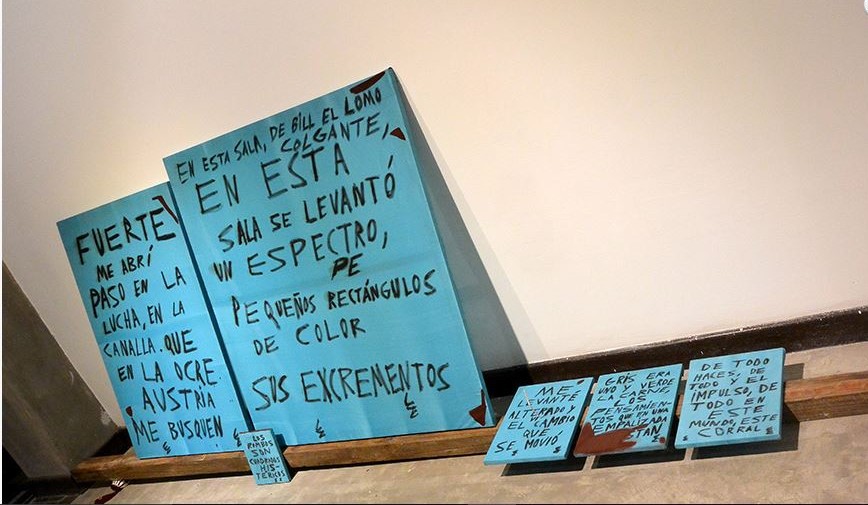 FUERTE
ME ABRÍ
PASO EN LA
LUCHA, EN LA
CANALLA. QUE
EN LA OCRE
AUSTRIA
ME BUSQUEN
EN ESTA SALA, DE BILL EL LOMO
COLGANTE,
EN ESTA
SALA SE LEVANTÓ
UN ESPECTRO,
PE
PEQUEÑOS RECTÁNGULOS
DE COLOR
SUS EXCREMENTOS
LOS
ROMBOS
SON
CUADRADOS
HIS-
TÉRICOS
ME
LEVANTÉ
ALTERADO Y
EL CAMBIO
QUE
SE MOVIÓ
GRIS ERA
UNO Y VERDE
LA CARNE
LOS
PENSAMIEN
TOS QUE EN UNA
EMPALIZADA
TAN
DE TODO
HACES, DE
TODO Y EL
IMPULSO, DE
TODO EN
ESTE
MUNDO, ESTE
CORRAL